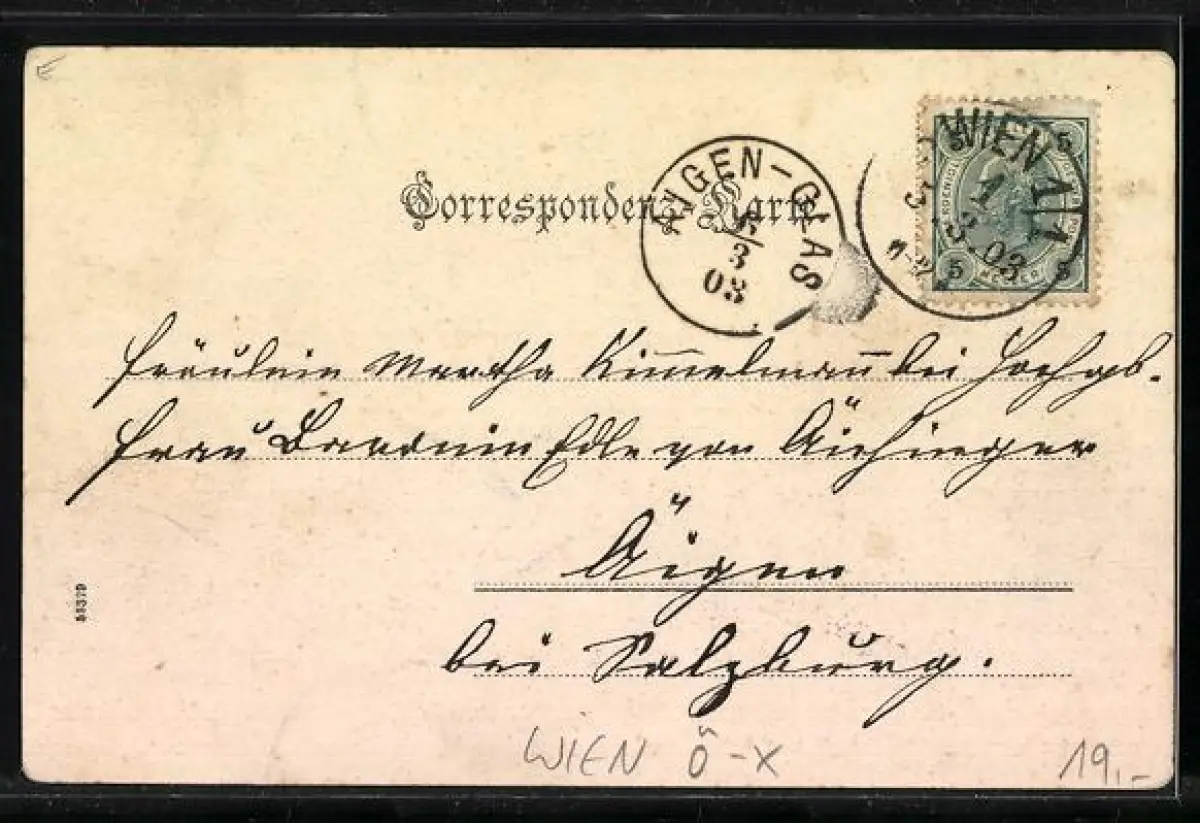 Correspondenz-Karte
AIGEN-GLAS
3
03
WIEN 1/1
1
3.03
5 5
5 5
Fräulein Martha Kimmelmann bei Hochgeb.
Frau Baronin Edle von Aichinger
Aigen
bei Salzburg.
55379
WIEN Ö-X
19.-